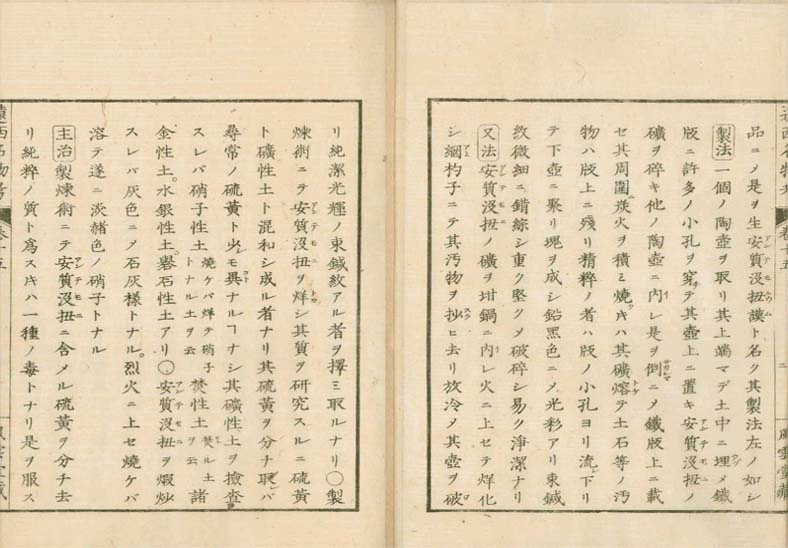 品ニメ是ヲ生安質没扭謨ト名ク其製法左ノ如シ
製法 一個ノ陶壺ヲ取リ其上端マデ土中ニ埋メ鐵
版ニ許多ノ小孔ヲ穿テ其壺上ニ置キ安質没扭ノ
礦ヲ碎キ他ノ陶壺ニ内レ是ヲ倒ニメ鐵版上ニ載
セ其周圍炭火ヲ積ミ燒クキハ其礦熔テ土石等ノ汚
物ハ版上ニ殘リ精粹ノ者ハ版ノ小孔ヨリ流下リ
テ下壺ニ聚リ塊ヲ成シ鉛黑色ニメ光彩アリ束鍼
紋微細ニ錯綜シ重ク堅クメ破碎シ易ク淨潔ナリ
又法 安質没扭ノ礦ヲ坩鍋ニ内レ火ニ上セテ烊化
シ綱杓子ニテ其汚物ヲ抄ヒ去リ放冷メ其壺ヲ破
リ純潔光輝ノ束鍼紋アル者ヲ擇ミ取ルナリ〇製
煉術ニテ安質没扭ヲ烊シ其質ヲ研究スルニ硫黄
ト礦性土ト混和シ成ル者ナリ其硫黄ヲ分チ取レバ
尋常ノ硫黄ト少シモ異ナルヿナシ其礦性土ヲ撿査
スレバ硝子性土 燒ケバ烊テ硝子トナル土ヲ云 焚性土 焚ル土ヲ云 諸
金性土。水銀性土。礜石性土アリ〇安質没扭ヲ煆炒
スレバ灰色ニメ石灰樣トナル。烈火ニ上セ燒ケバ
溶テ遂ニ淡赭色ノ硝子トナル
主治 製煉術ニテ安質没扭ニ含メル硫黄ヲ分チ去
リ純粹ノ質ト爲スキハ一種ノ毒トナリ是ヲ服ス
遠西名物考 卷十五
二 風雲堂藏